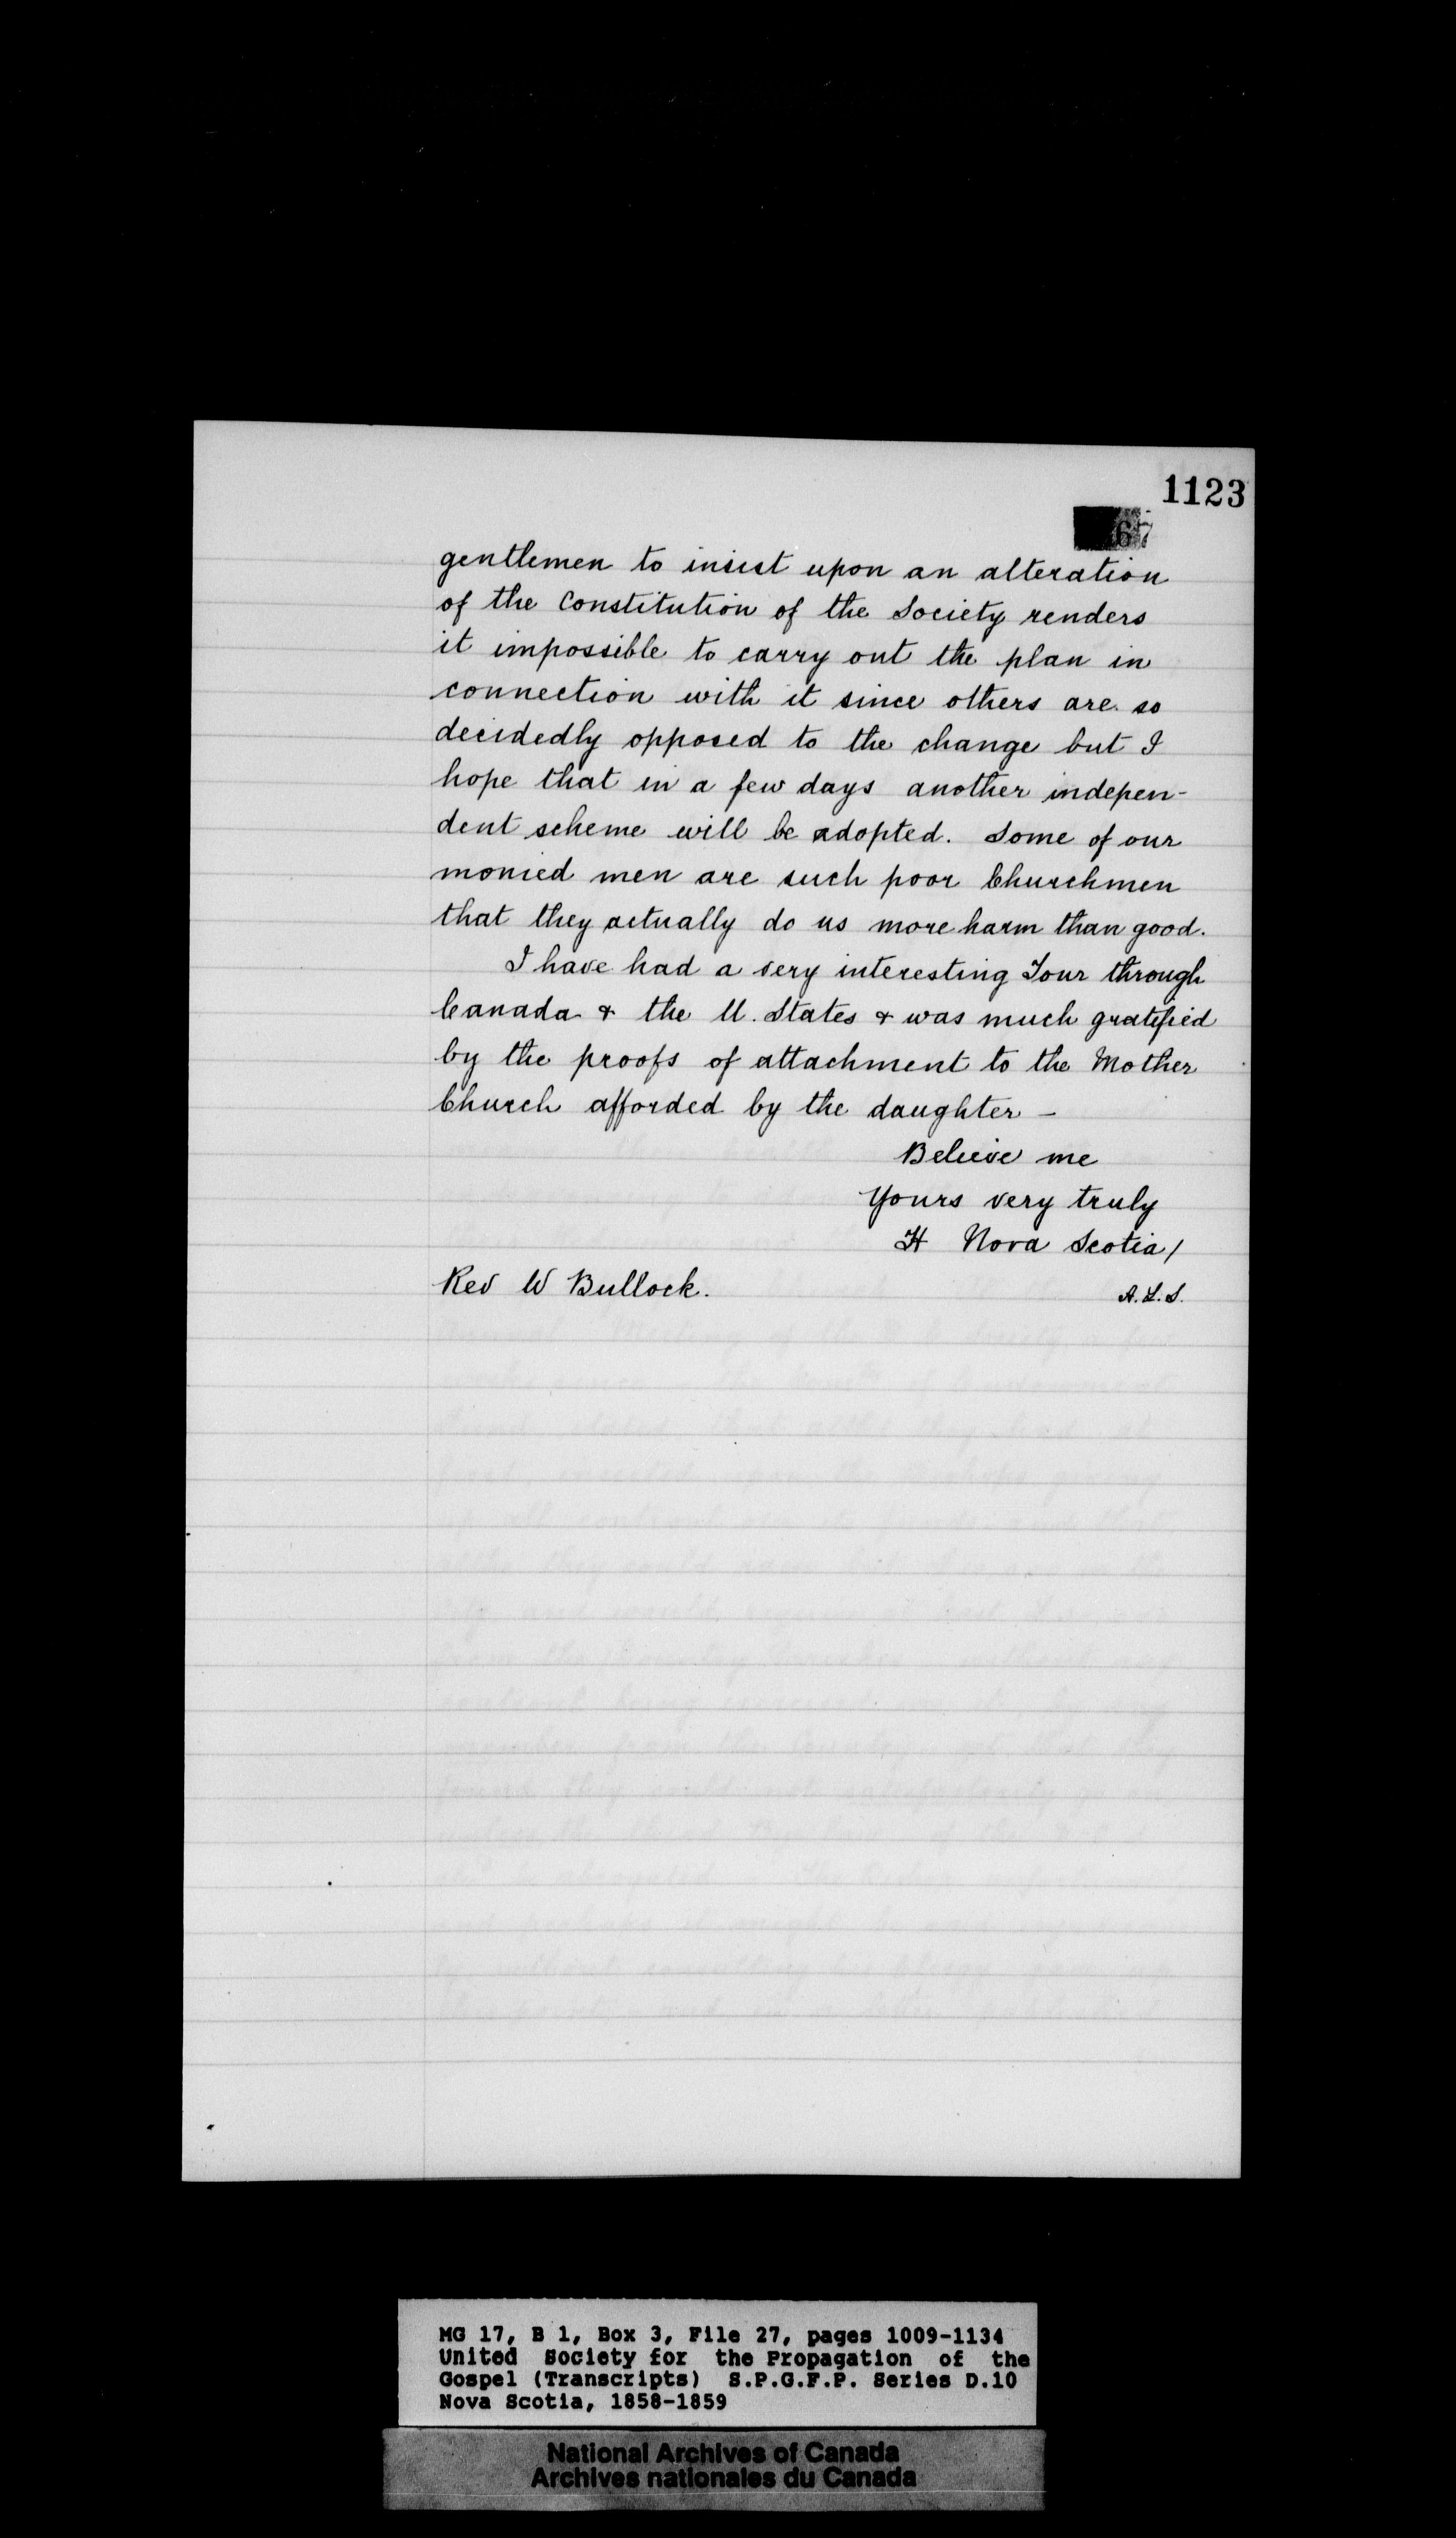 1123
67
gentlemen to insist upon an alteration
of the Constitution of the Society renders
it impossible to carry out the plan in
connection with it since others are so
decidedly opposed to the change but I
hope that in a few days another indepen-
dent scheme will be adopted. Some of our
monied men are such poor Churchmen
that they actually do us more harm than good.
I have had a very interesting Tour through
Canada & the U. States & was much gratified
by the proofs of attachment to the Mother
Church afforded by the daughter –
Believe me
Yours very truly
H Nova Scotia /
Rev W Bullock.
A.L.S.
MG 17, B 1, Box 3, File 27, pages 1009-1134
United Society for the Propagation of the
Gospel (Transcripts) S.P.G.F.P. Series D.10
Nova Scotia, 1858-1859
National Archives of Canada
Archives nationales du Canada